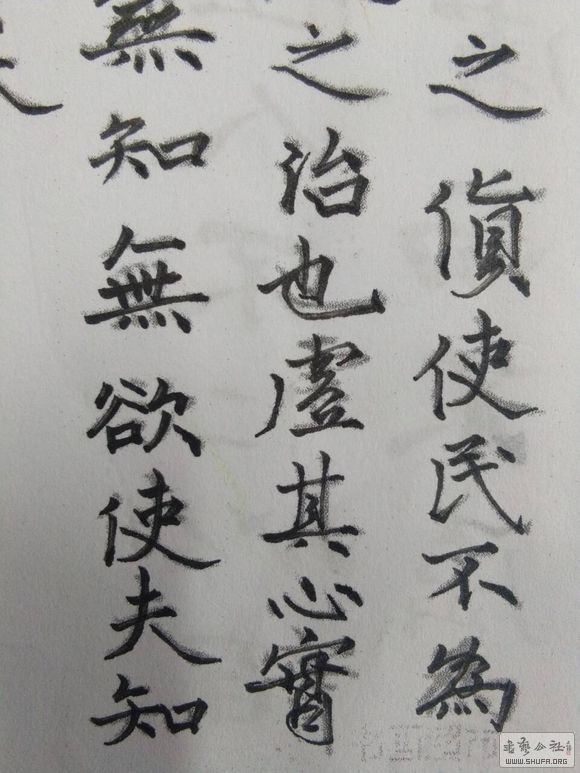 之貨使民不為
之治也虛其心實
無知無欲使夫知
书艺公社
WWW.SHUFA.ORG